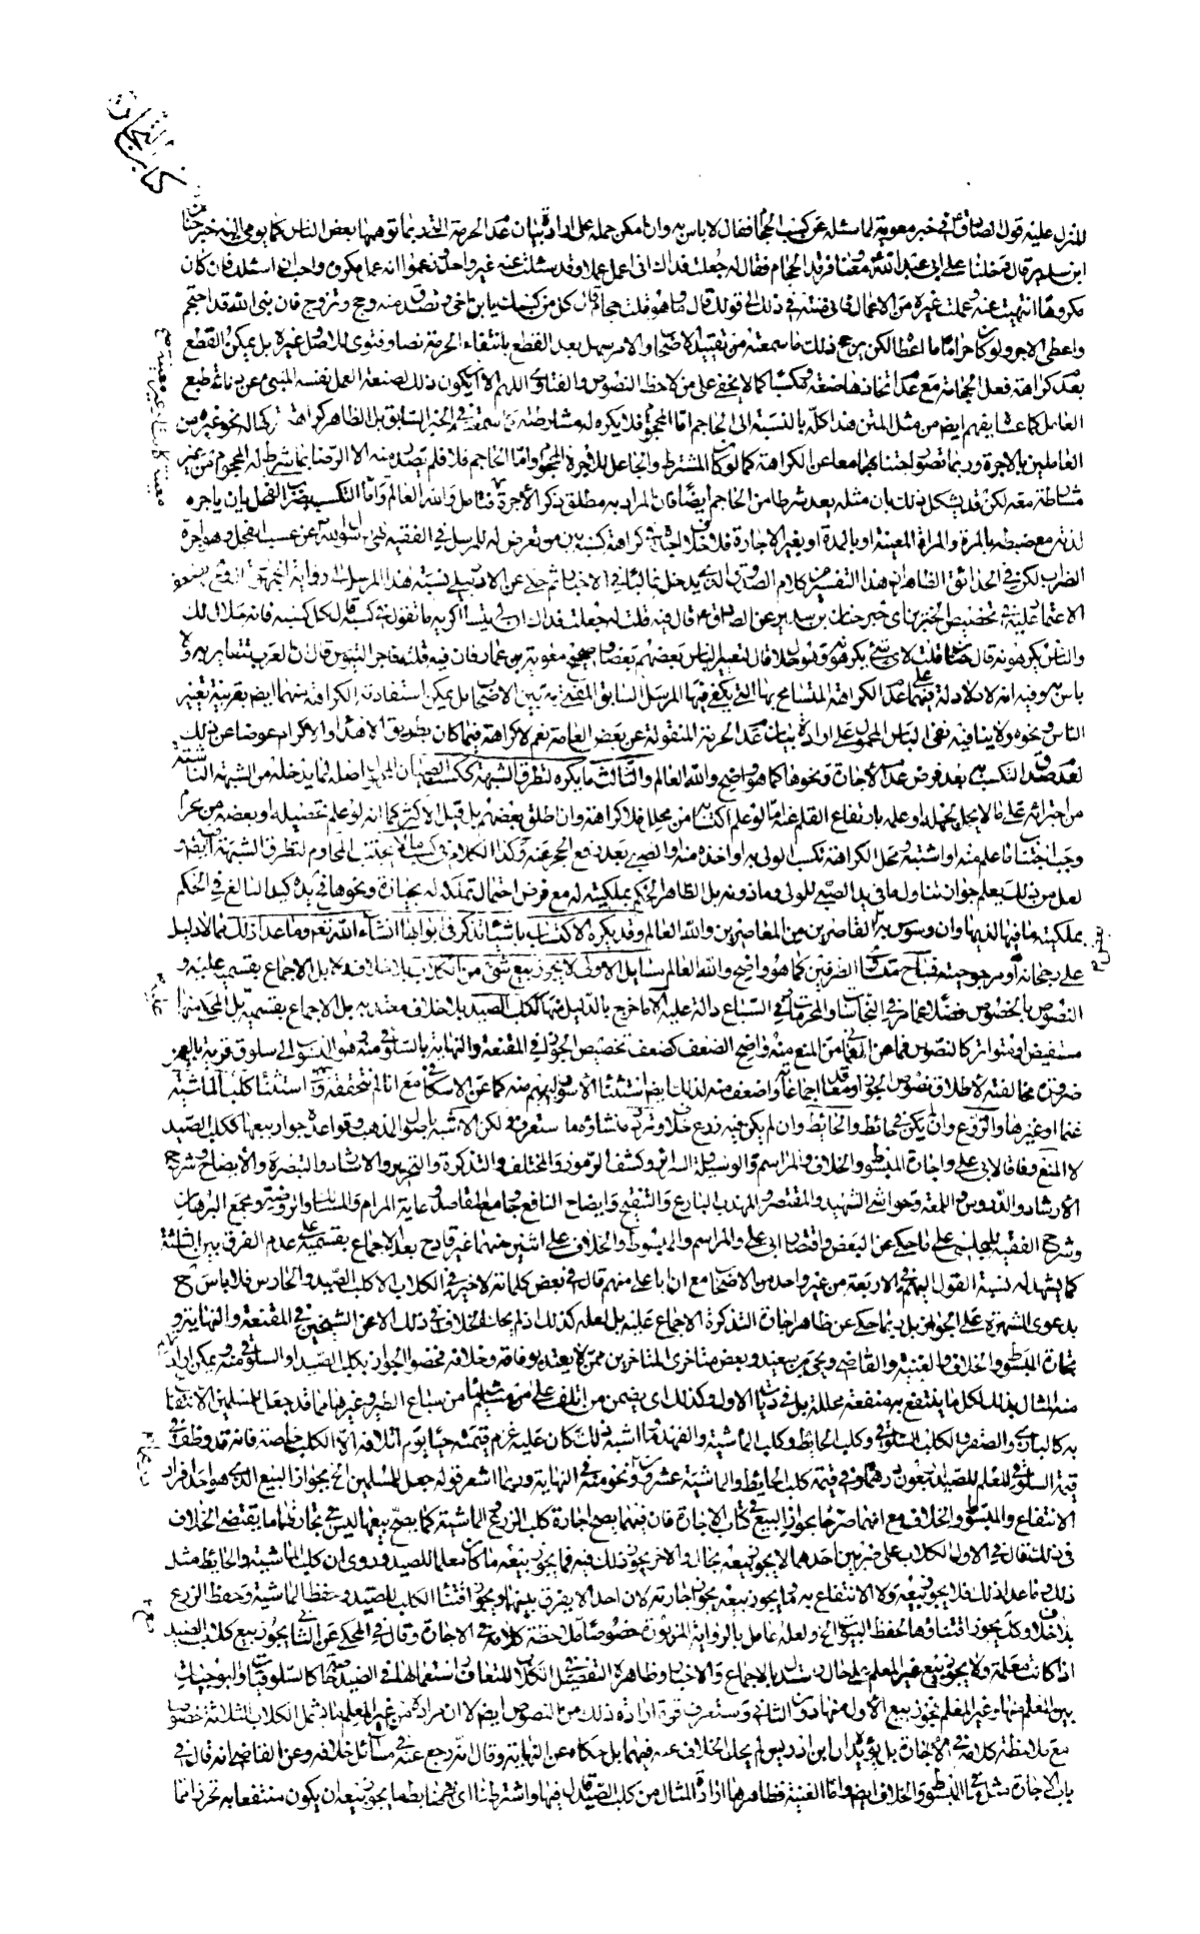 كتاب التجارة
المنزل عليه قول الصادق في خبر معوية لما سئله عن كسب الحجام فقال لا باس به وان امكن حمله على ارادة بيان عدم الحرمة التي ربما توهمها بعض الناس كما يومي اليه خبر حنان
ابن سدير قال دخلنا على ابي عبد الله ومعنا فرقد الحجام فقال له جعلت فداك اني اعمل عملا وقد سئلت عنه غير واحد فزعموا انه عمل مكروه وانا احب ان اسئلك فان كان
مكروها انتهيت عنه وعملت غيره من الاعمال فاني منته في ذلك الى قولك قال وما هو قلت حجام قال كل من كسبك يا بن اخي وتصدق منه وحج وتزوج فان نبي الله قد احتجم
واعطى الاجر ولو كان حراما ما اعطاه لكن مع ذلك فما سمعته من تقييد الاصحاب والامر سهل بعد القطع بانتفاء الحرمة نصا وفتوى للاصل وغيره بل يمكن القطع
بعدم كراهة فعل الحجامة مع عدم اتخاذها صنعة ومكسبا كما لا يخفى على من لاحظ النصوص والفتاوى اللهم الا ان يكون ذلك لصنعة العمل نفسه
العامل كما عساه يفهم ايضا من مثل المتن هذا كله بالنسبة الى الحاجم اما المحجوم فلا يكره له مشارطته
العاملين بالاجرة وربما تصور اجتنابهما معا عن الكراهة كما لو كان المشترط والجاعل للاجرة المحجوم واما الحاجم فلا فلم يصدر منه الا الرضا بما شرط له المحجوم من غير
مشاطة معه لكن قد يشكل ذلك بان مثله يعد شرطا من الحاجم ايضا فان المراد به مطلق ذكر الاجرة فتامل والله العالم واما التكسب بضراب الفحل بان ياجره
لذلك مع ضبطه بالمرة والمرات المعينة او بالمدة او بغير الاجارة فلا خلاف اجده في كراهة كسبه
الضراب لكن في الحدائق الظاهر ان هذا التفسير من كلام الصدوق
الاعتماد عليه في تخصيص الخبرين اي خبر حنان بن سدير عن الصادق قال فيه قلت له جعلت فداك ان لي تيسا اكريه ما تقول في كسبه قال كل كسبه فانه حلال لك
والناس يكرهونه قال حنان قلت لاي شيء يكرهونه وهو حلال قال لتعيير الناس بعضهم بعضا وصحيح معوية بن عمار فان فيه قلت له فاجر التيوس قال ان العرب لتتعاير به ولا
باس وفيه انه لا دلالة فيهما على عدم الكراهة المتسامح بها التي يكفي فيها المرسل السابق المفتى به بين الاصحاب بل يمكن استفادة الكراهة منهما ايضا بقرينة تعيير
الناس ونحوه ولا ينافيه نفي الباس المحمول على ارادة بيان عدم الحرمة المنقولة عن بعض العامة نعم لا كراهة فيما كان بطريق الاهداء والاكرام عوضا عن ذلك
لعدم صدق التكسب به بعد فرض عدم الاجارة ونحوها كما هو واضح والله العالم والثالث ما يكره لتطرق الشبهة ككسب الصبيان المجهول اصله لما يدخله من الشبهة الناشئة
من اجترائه على ما لا يحل لجهله او علمه بارتفاع القلم عنه اما لو علم اكتسابه من محلل فلا كراهة وان اطلق بعضهم بل قيل الاكثر كما انه لو علم تحصيله او بعضه من محرم
وجب اجتناب ما علم منه او اشتبه ومحل الكراهة تكسب الولي به او اخذه منه او الصبي بعد رفع الحجر عنه وكذا الكلام في كسب من لا يجتنب المحارم لتطرق الشبهة
لعل من ذلك يعلم جواز تناول ما في يد الصبي للولي وماذونه بل الظاهر الحكم بملكيته له مع فرض احتمال تملكه له بحيازة ونحوها في يده كيد البالغ في الحكم
بملكيته ما فيها لذيها وان وسوس به القاصرين من المعاصرين والله العالم وقد يكره الاكتساب باشياء تذكر في ابوابها انشاء الله نعم وما عدا ذلك مما لا دليل
على رجحانه او مرجوحيته فمباح متساوي الطرفين كما هو واضح والله العالم مسائل الاولى لا يجوز بيع شيء من الكلاب بلا خلاف بل الاجماع بقسميه عليه و
النصوص بالخصوص فضلا عما مر في النجاسات والمحرمات والسباع دالة عليه الا ما خرج بالدليل منها ككلب الصيد بلا خلاف معتد به بل الاجماع بقسميه بل المحكي منهما
مستفيض او متواتر كالنصوص فما عن العماني من المنع منه واضح الضعف كضعف تخصيص الجواز في المقنعة والنهاية بالسلوقي منه هو المنسوب الى سلوق قرية باليمن
ضرورة مخالفته لاطلاق نصوص الجواز ومعاقد اجماعاته واضعف منه لذلك ايضا استثناء الاسود البهيم منه كما عن الاسكافي مع انا لم نتحققه وفي استثناء كلب الماشية
غنما او غيرها والزرع وان لم يكن في حائط والحائط وان لم يكن فيه زرع خلاف وتردد منشاؤه ما ستعرفه ولكن الاشبه باصول المذهب وقواعده جواز بيعها ككلب الصيد
لا المنع وفاقا لابي علي واجارة المبسوط والخلاف والمراسم والوسيلة والسرائر وكشف الرموز والمختلف والتذكرة والتحرير والارشاد والتبصرة والايضاح وشرح
الارشاد والدروس واللمعة وحواشي الشهيد والمقتصر والمهذب البارع والتنقيح وايضاح النافع وجامع المقاصد وغاية المرام والمسالك والروضة ومجمع البرهان
وشرح الفقيه للمجلسي على ما حكي عن البعض واقتصار ابي علي والمراسم والمبسوط والخلاف على اثنين منهما غير قادح بعد الاجماع بقسميه على عدم الفرق بين الثلثة
كما يشهد له نسبة القول اليهم في الاربعة من غير واحد من الاصحاب مع ان ابا علي منهم قال في بعض كلماته الاخير في الكلاب الا كلب الصيد والحارس فلا باس
بدعوى الشهرة على الجواز بل ربما حكي عن ظاهر اجارة التذكرة الاجماع عليه بل لعله كذلك اذ لم يحك الخلاف في ذلك الا عن الشيخين في المقنعة والنهاية و
تجارة المبسوط والخلاف والغنية والقاضي ويحيى بن سعيد وبعض متاخري المتاخرين ممن لا يعتد بوفاقه وخلافه فخصوا الجواز بكلب الصيد او السلوقي منه ويمكن ارادة
منه المثال بذلك لكل ما ينتفع به منفعة محللة بل في ديات الاول وكذلك اي يضمن من اتلف على مسلم شيئا من سباع الطير وغيرها مما قد جعل للمسلمين الانتفاع
به كالبازي والصقر والكلب السلوقي وكلب الحائط وكلب الماشية والفهد وما اشبه ذلك كان عليه غرم قيمته حيا يوم اتلافه الا الكلب خاصة فانه قد وظف في
قيمة السلوقي المعلم للصيد اربعون درهما وفي قيمة كلب الحايط والماشية عشرون ونحو منه في النهاية وربما اشعر قوله جعل للمسلمين الخ بجواز البيع الذي هو احد افراد
الانتفاع والمبسوط والخلاف مع انهما صرحا بجواز البيع في كتاب الاجارة فان فيهما يصح اجارة كلب الزرع والماشية كما يصح بيعهما ليس في تجارتهما ما يقتضي الخلاف
في ذلك فقال في الاول الكلاب على ضربين احدهما لا يجوز بيعه بحال والاخر يجوز ذلك فيه فما يجوز بيعه ما كان معلما للصيد وروى ان كلب الماشية والحائط مثل
ذلك وما عدا ذلك فلا يجوز بيعه ولا الانتفاع به وما يجوز بيعه يجوز اجارته لان احدا لا يفرق بينهما ويجوز اقتناء الكلب للصيد وحفظ الماشية وحفظ الزرع
بلا خلاف وكذا يجوز اقتناؤها لحفظ البيوت الخ ولعله عامل بالرواية المزبورة خصوصا بملاحظة كلامه في الاجارة وقال في المحكي عن الثاني يجوز بيع كلاب الصيد
اذا كانت معلمة ولا يجوز بيع غير المعلم على حال واستدل بالاجماع والاخبار وظاهره التفصيل في الكلاب المتعارف استعمالها في الصيد
بين المعلم منها وغير المعلم فيجوز بيع الاول منها دون الثاني وستعرف قوة ارادة ذلك من النصوص ايضا لا ان مراده من غير المعلم ما يشمل الكلاب الثلاثة خصوصا
مع ملاحظة كلامه في الاجارة بل يؤيده ان ابن ادريس لم يحك الخلاف عنه فيهما بل حكاه عن النهاية وقال انه رجع عنه في مسائل خلافه وعن القاضي انه قال في
باب الاجارة مثل ما في المبسوط والخلاف ايضا واما الغنية فظاهرها ارادة المثال من كلب الصيد فيها واشترطنا ان يكون منتفعا به تحرزا مما